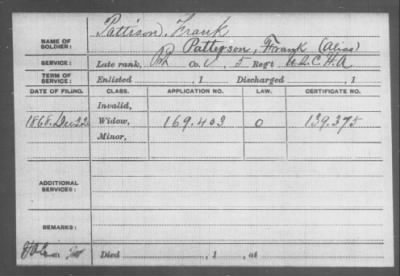 NAME OF SOLDIER: Pattison, Frank
Patterson, Frank (Alias)
SERVICE: Late rank, Co. 5 Reg't U.S.C.H.A
TERM OF SERVICE: Enlisted , 1 Discharged , 1
DATE OF FILING. CLASS. APPLICATION NO. LAW. CERTIFICATE NO.
Invalid,
1868 Dec 22 Widow, 169.403 O 139.375
Minor,
ADDITIONAL SERVICES:
REMARKS:
Died , 1 , at